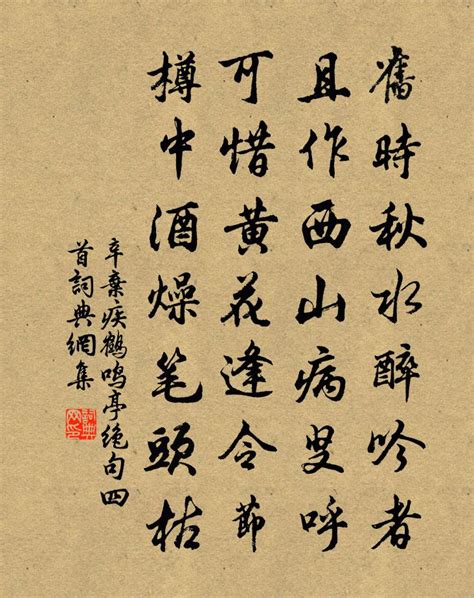 舊時秋水醉吟者
且作西山病叟呼
可惜黄花逢令節
樽中酒燥笔頭枯
辛棄疾鶴鳴亭绝句四
首詞典網集